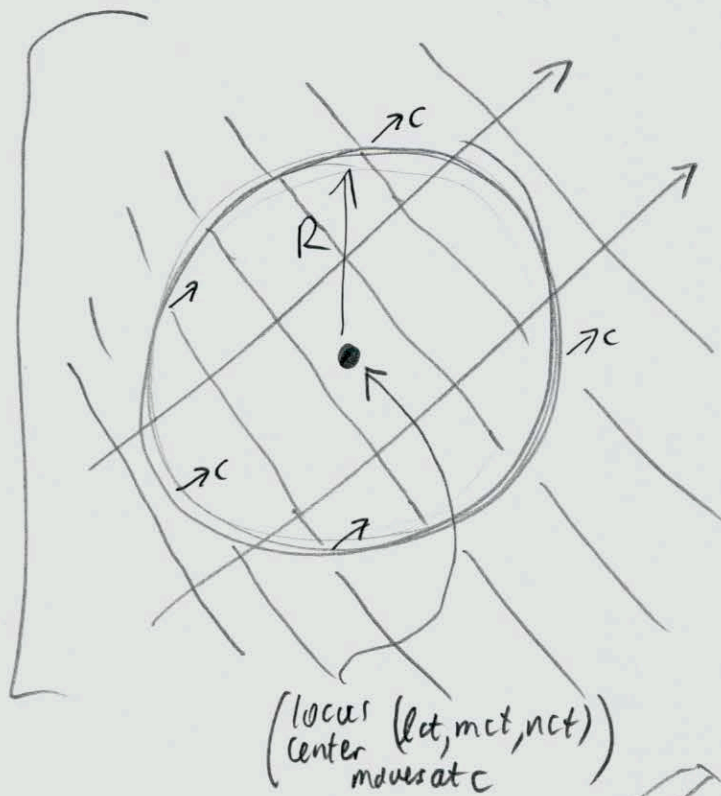 c
R
c
c
(locus
center (lct, mct, nct)
moves at c)